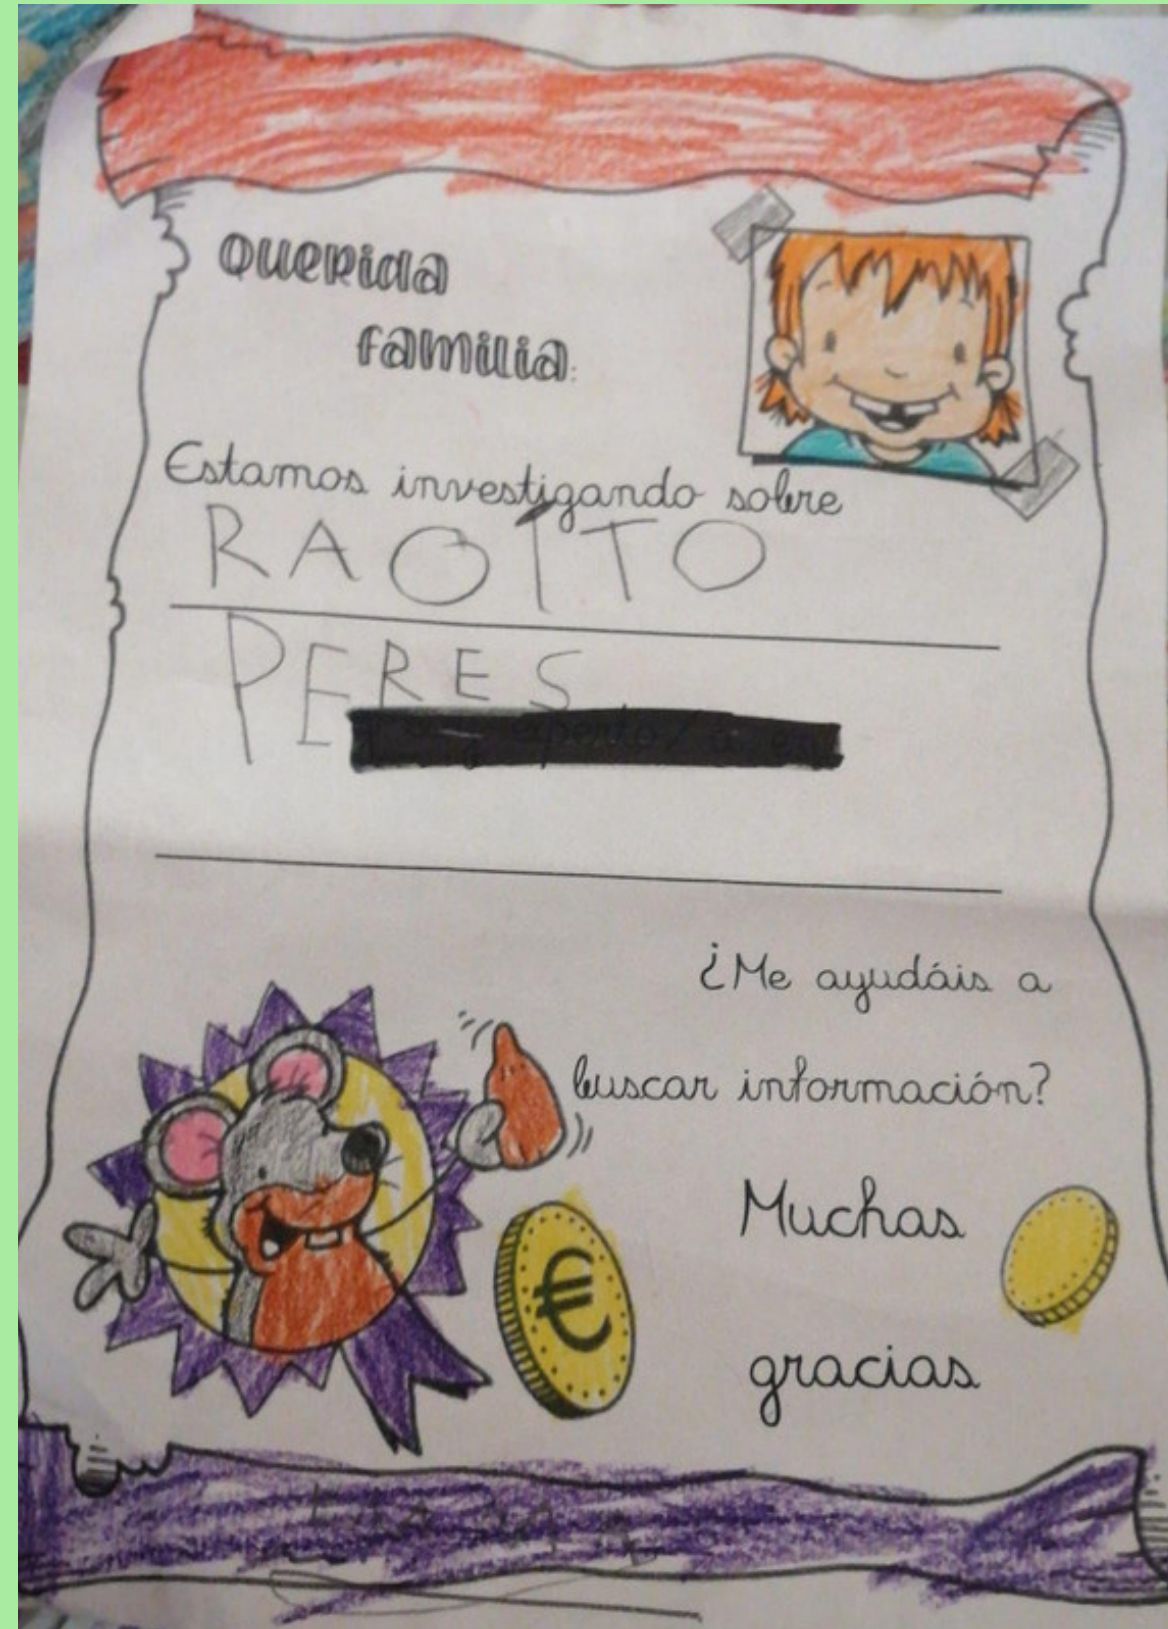 Querida
familia:
Estamos investigando sobre
RAOITO
PERES
¿Me ayudáis a
buscar información?
Muchas
gracias
€